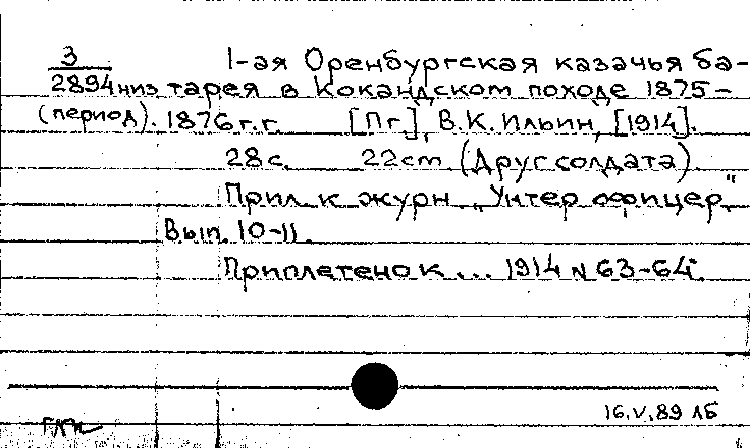 3 1-ая Оренбургская казачья ба-
2894 низ тарея в Кокандском походе 1875-
(период). 1876 г.г. [Пг.], В.К. Ильин, [1914].
28 с. 22 cm. (Друг солдата).
Прил. к журн. „Унтер офицер"
Вып. 10-11.
Приплетено к ... 1914 N 63-64.
16.V.89 ЛБ